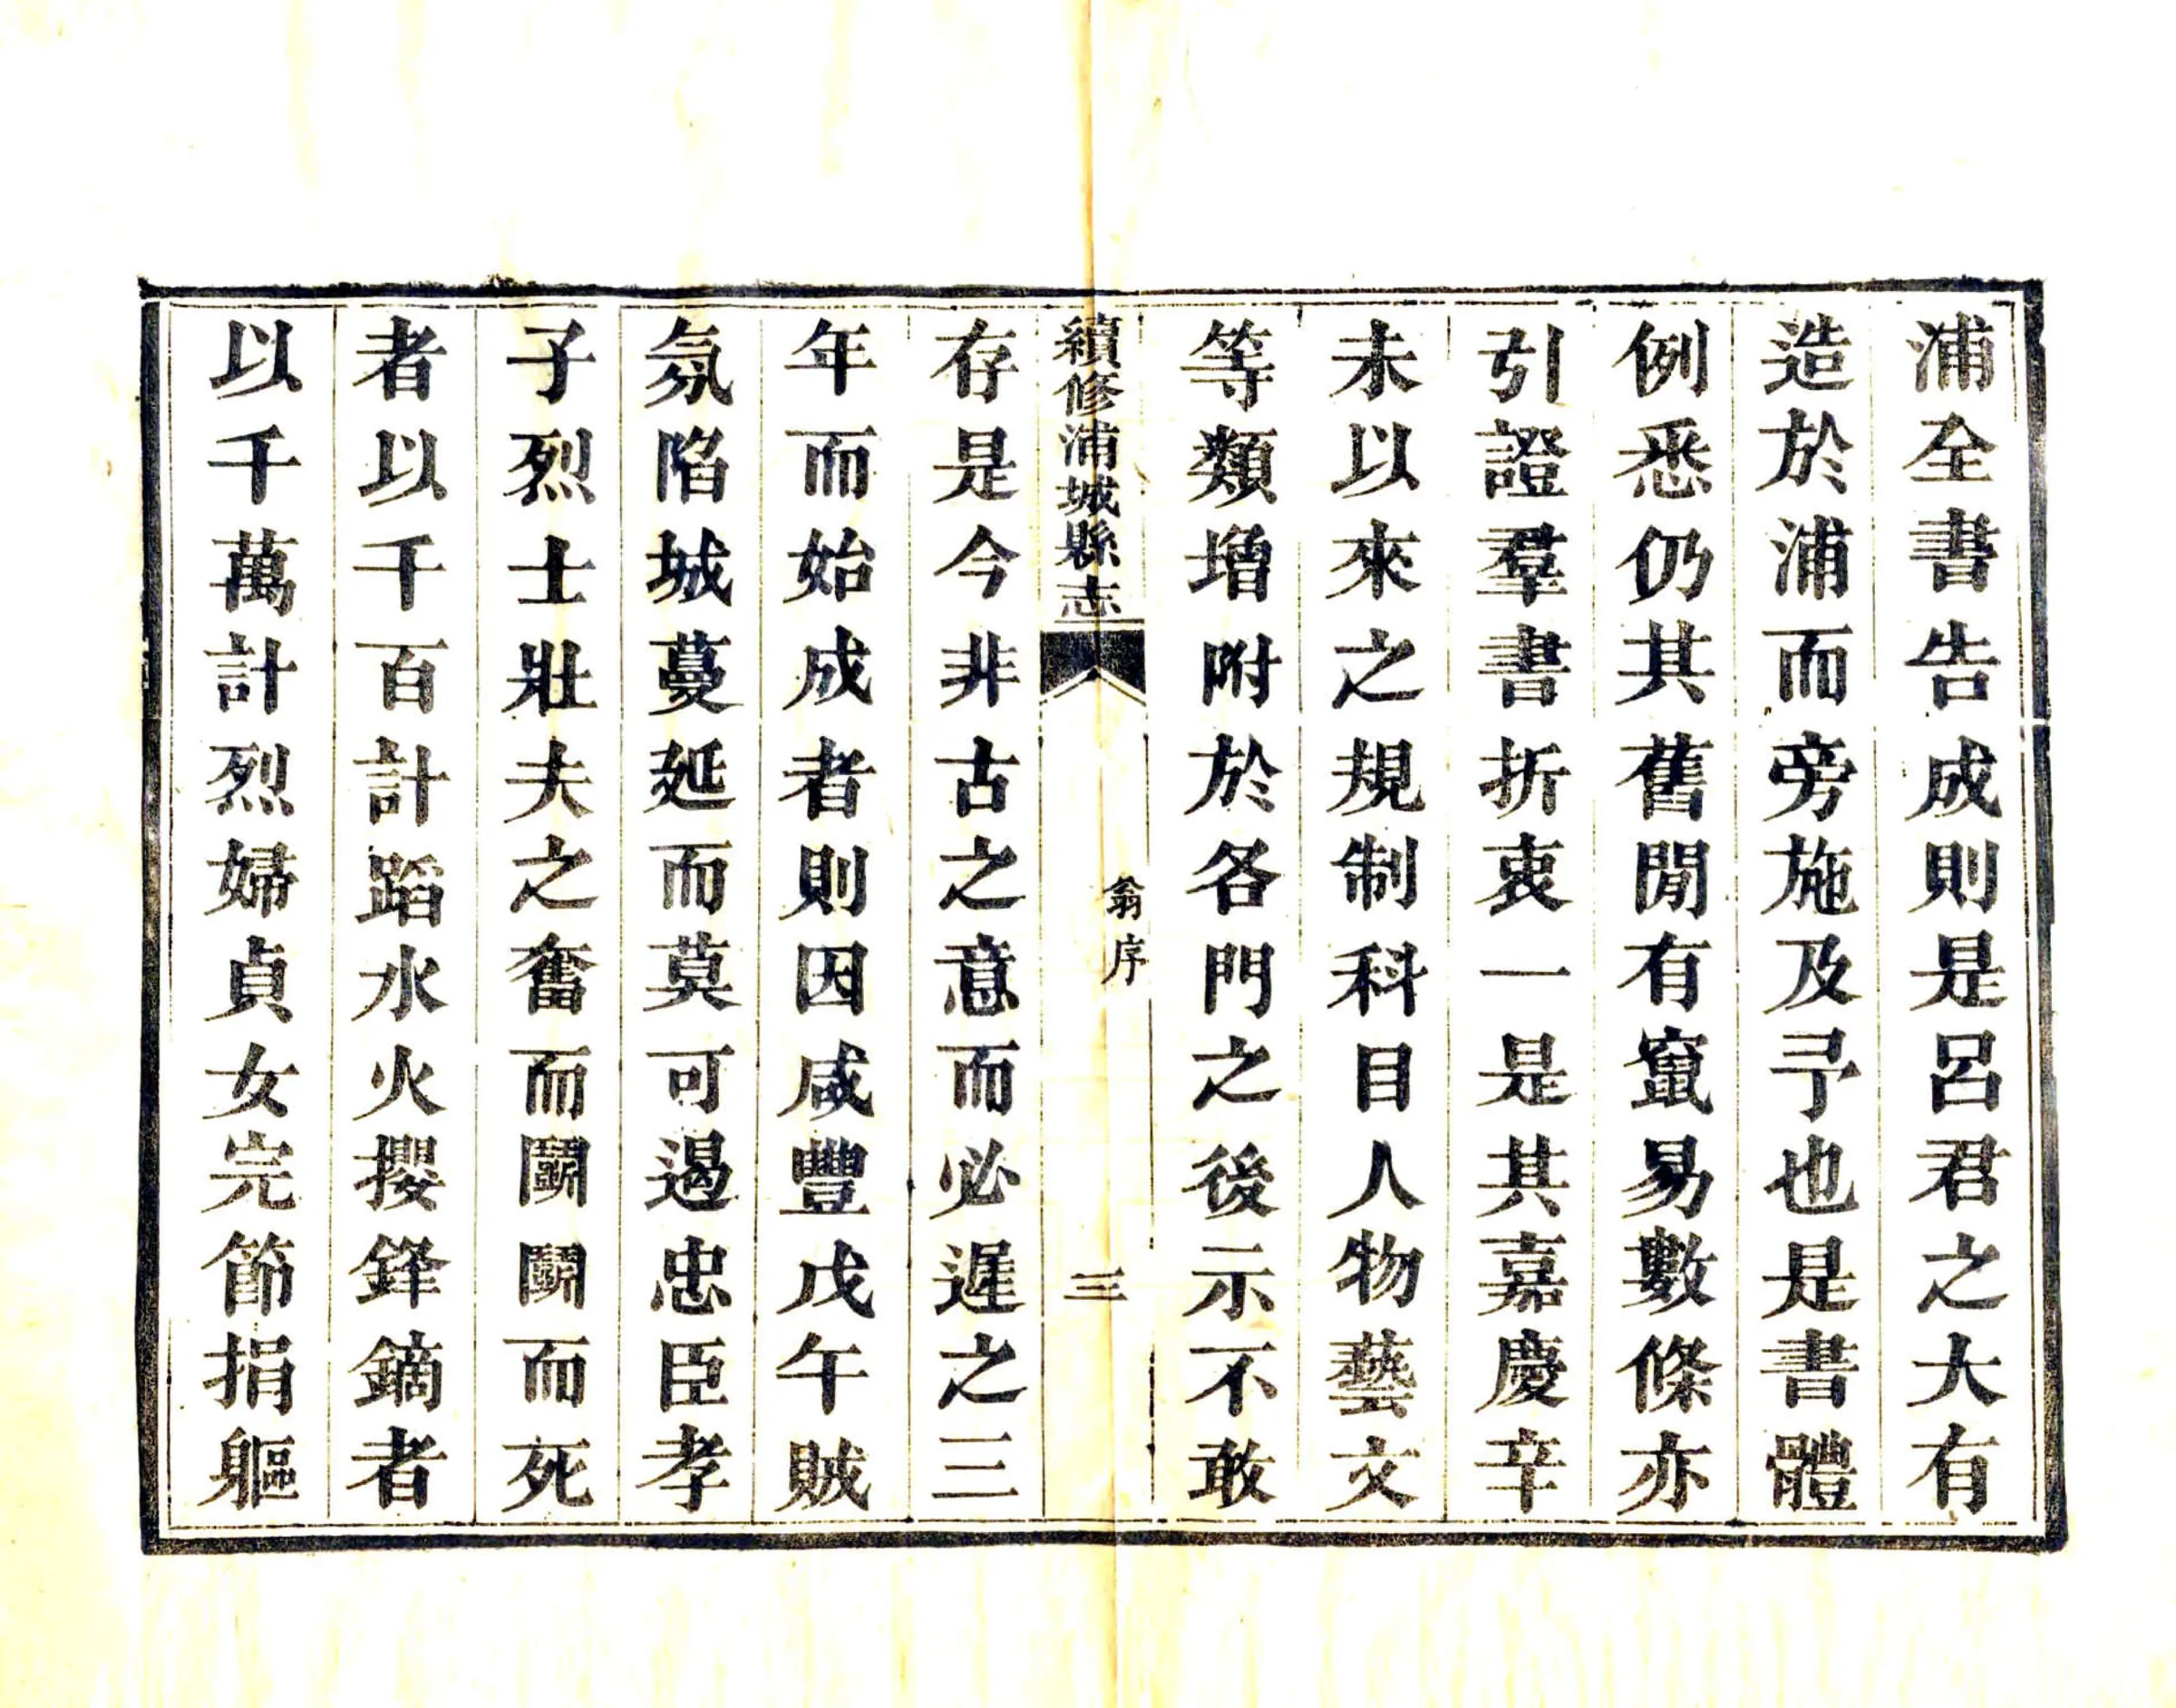 浦全書告成則是呂君之大有
造於浦而旁施及予也是書體
例悉仍其舊閒有竄易數條亦
引證羣書折衷一是其嘉慶辛
未以來之規制科目人物藝文
等類增附於各門之後示不敢
續修浦城縣志
翁序
三
存是今非古之意而必遲之三
年而始成者則因咸豐戊午賊
氛陷城蔓延而莫可遏忠臣孝
子烈士壯夫之奮而鬭鬭而死
者以千百計蹈水火攖鋒鏑者
以千萬計烈婦貞女完節捐軀